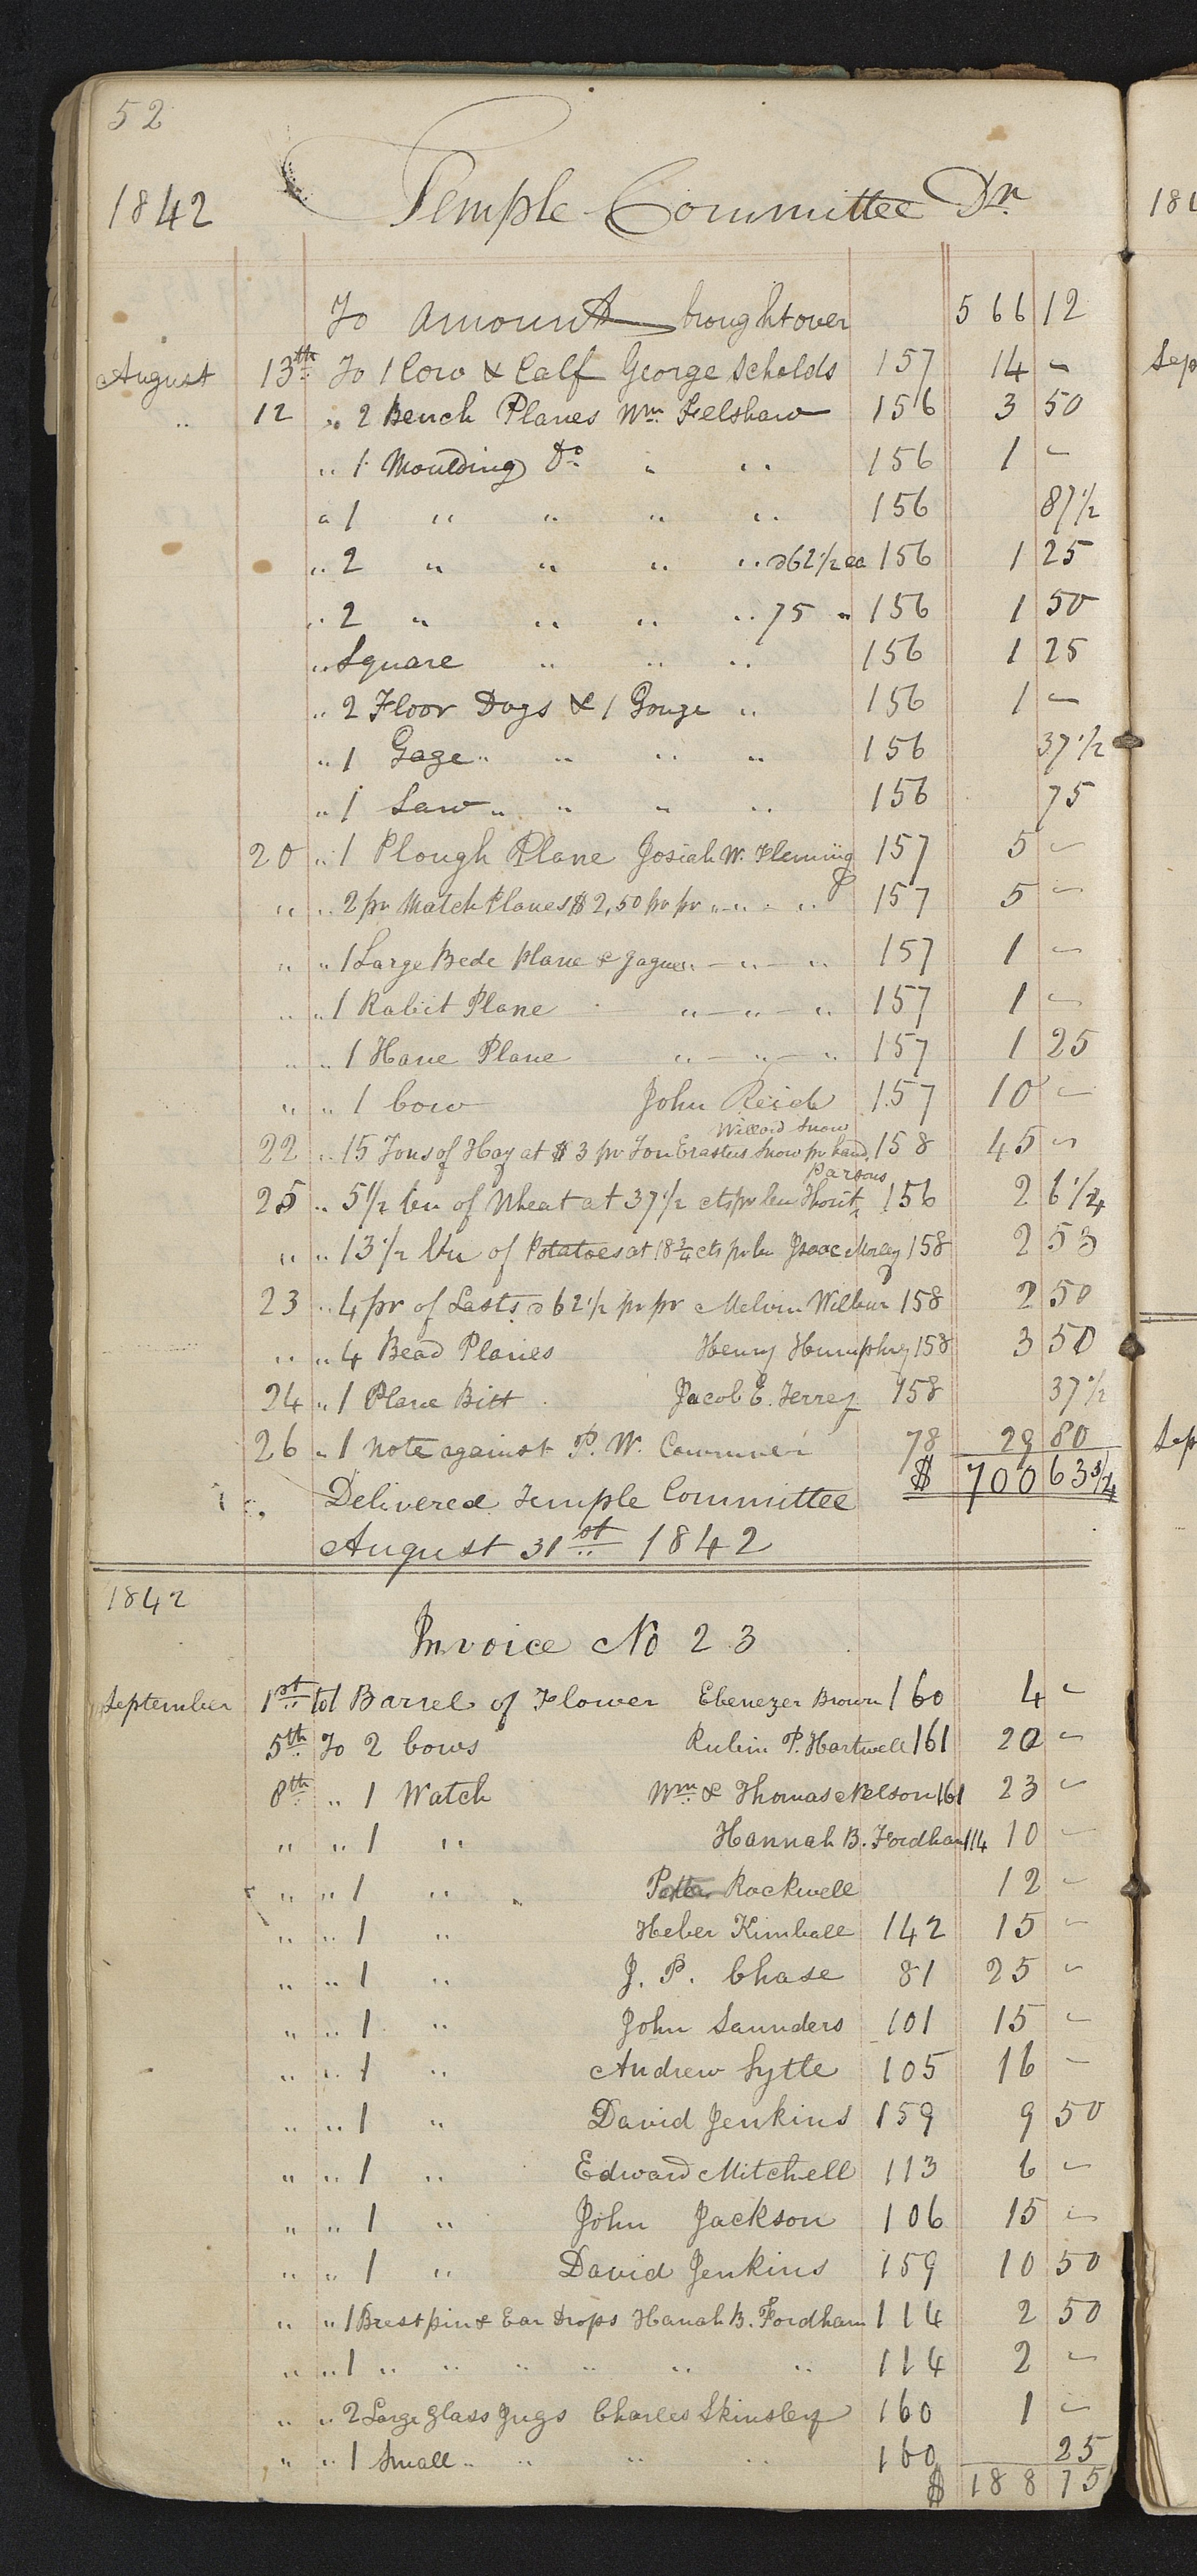 52
1842 Temple Committee Dr.
To amount brought over 566 12
August 13th To 1 Cow & Calf George Scholds 157 14 -
" 12 " 2 Bench Planes Wm Felshaw 156 3 50
" 1 Moulding Do " " 156 1 -
" 1 " " " " 156 87 1/2
" 2 " " " " @ 62 1/2 ea 156 1 25
" 2 " " " " 75 " 156 1 50
" Square " " " 156 1 25
" 2 Floor Dogs & 1 Gouge " 156 1 -
" 1 Gage " " " " 156 37 1/2
" 1 Saw " " " " 156 75
20 " 1 Plough Plane Josiah W. Fleming 157 5 -
" " 2 pr Match Planes $2,50 pr pr " " " 157 5 -
" " 1 Large Bede plane & gague " - " - " 157 1 -
" " 1 Rabit Plane " - " - " 157 1 -
" " 1 Hane Plane " - " - " 157 1 25
" " 1 Cow John Reid 157 10 -
Willard Snow
22 " 15 Tons of Hay at $3 pr Ton Erastus Snow pr hand 158 45 -
Parsons
25 " 5 1/2 bu of Wheat at 37 1/2 cts pr bu 156 2 6 1/4
" " 13 1/2 bu of Potatoes at 18 3/4 cts pr bu Isaac Morley 158 2 53
23 " 4 pr of Lasts @ 62 1/2 pr pr Melvin Wilbur 158 2 50
" " 4 Bead Planes Henry Humphry 158 3 50
24 " 1 Plane Bitt Jacob E. Terrey 158 37 1/2
26 " 1 note against P. W. 78 29 80
Delivered Temple Committee $ 700 63 3/4
August 31st 1842
1842
Invoice No 23
September 1st to 1 Barrel of Flower Ebenezer Brown 160 4 -
5th To 2 Cows Rubin P. Hartwell 161 20 -
8th " 1 Watch Wm & Thomas Nelson 161 23 -
" " 1 " Hannah B. Fordham 114 10 -
" " 1 " " Rockwell 12 -
" " 1 " Heber Kimball 142 15 -
" " 1 " J. P. Chase 81 25 -
" " 1 " John Saunders 101 15 -
" " 1 " Andrew Lytle 105 16 -
" " 1 " David Jenkins 159 9 50
" " 1 " Edward Mitchell 113 6 -
" " 1 " John Jackson 106 15 -
" " 1 " David Jenkins 159 10 50
" " 1 Brestpin & Ear Drops Hanah B. Fordham 114 2 50
" " 1 " " " " " " 114 2 -
" " 2 Large Glass Jugs Charles Skinsley 160 1 -
" " 1 Small " " " " 160 25
$ 188 75
181
Sep
Sep